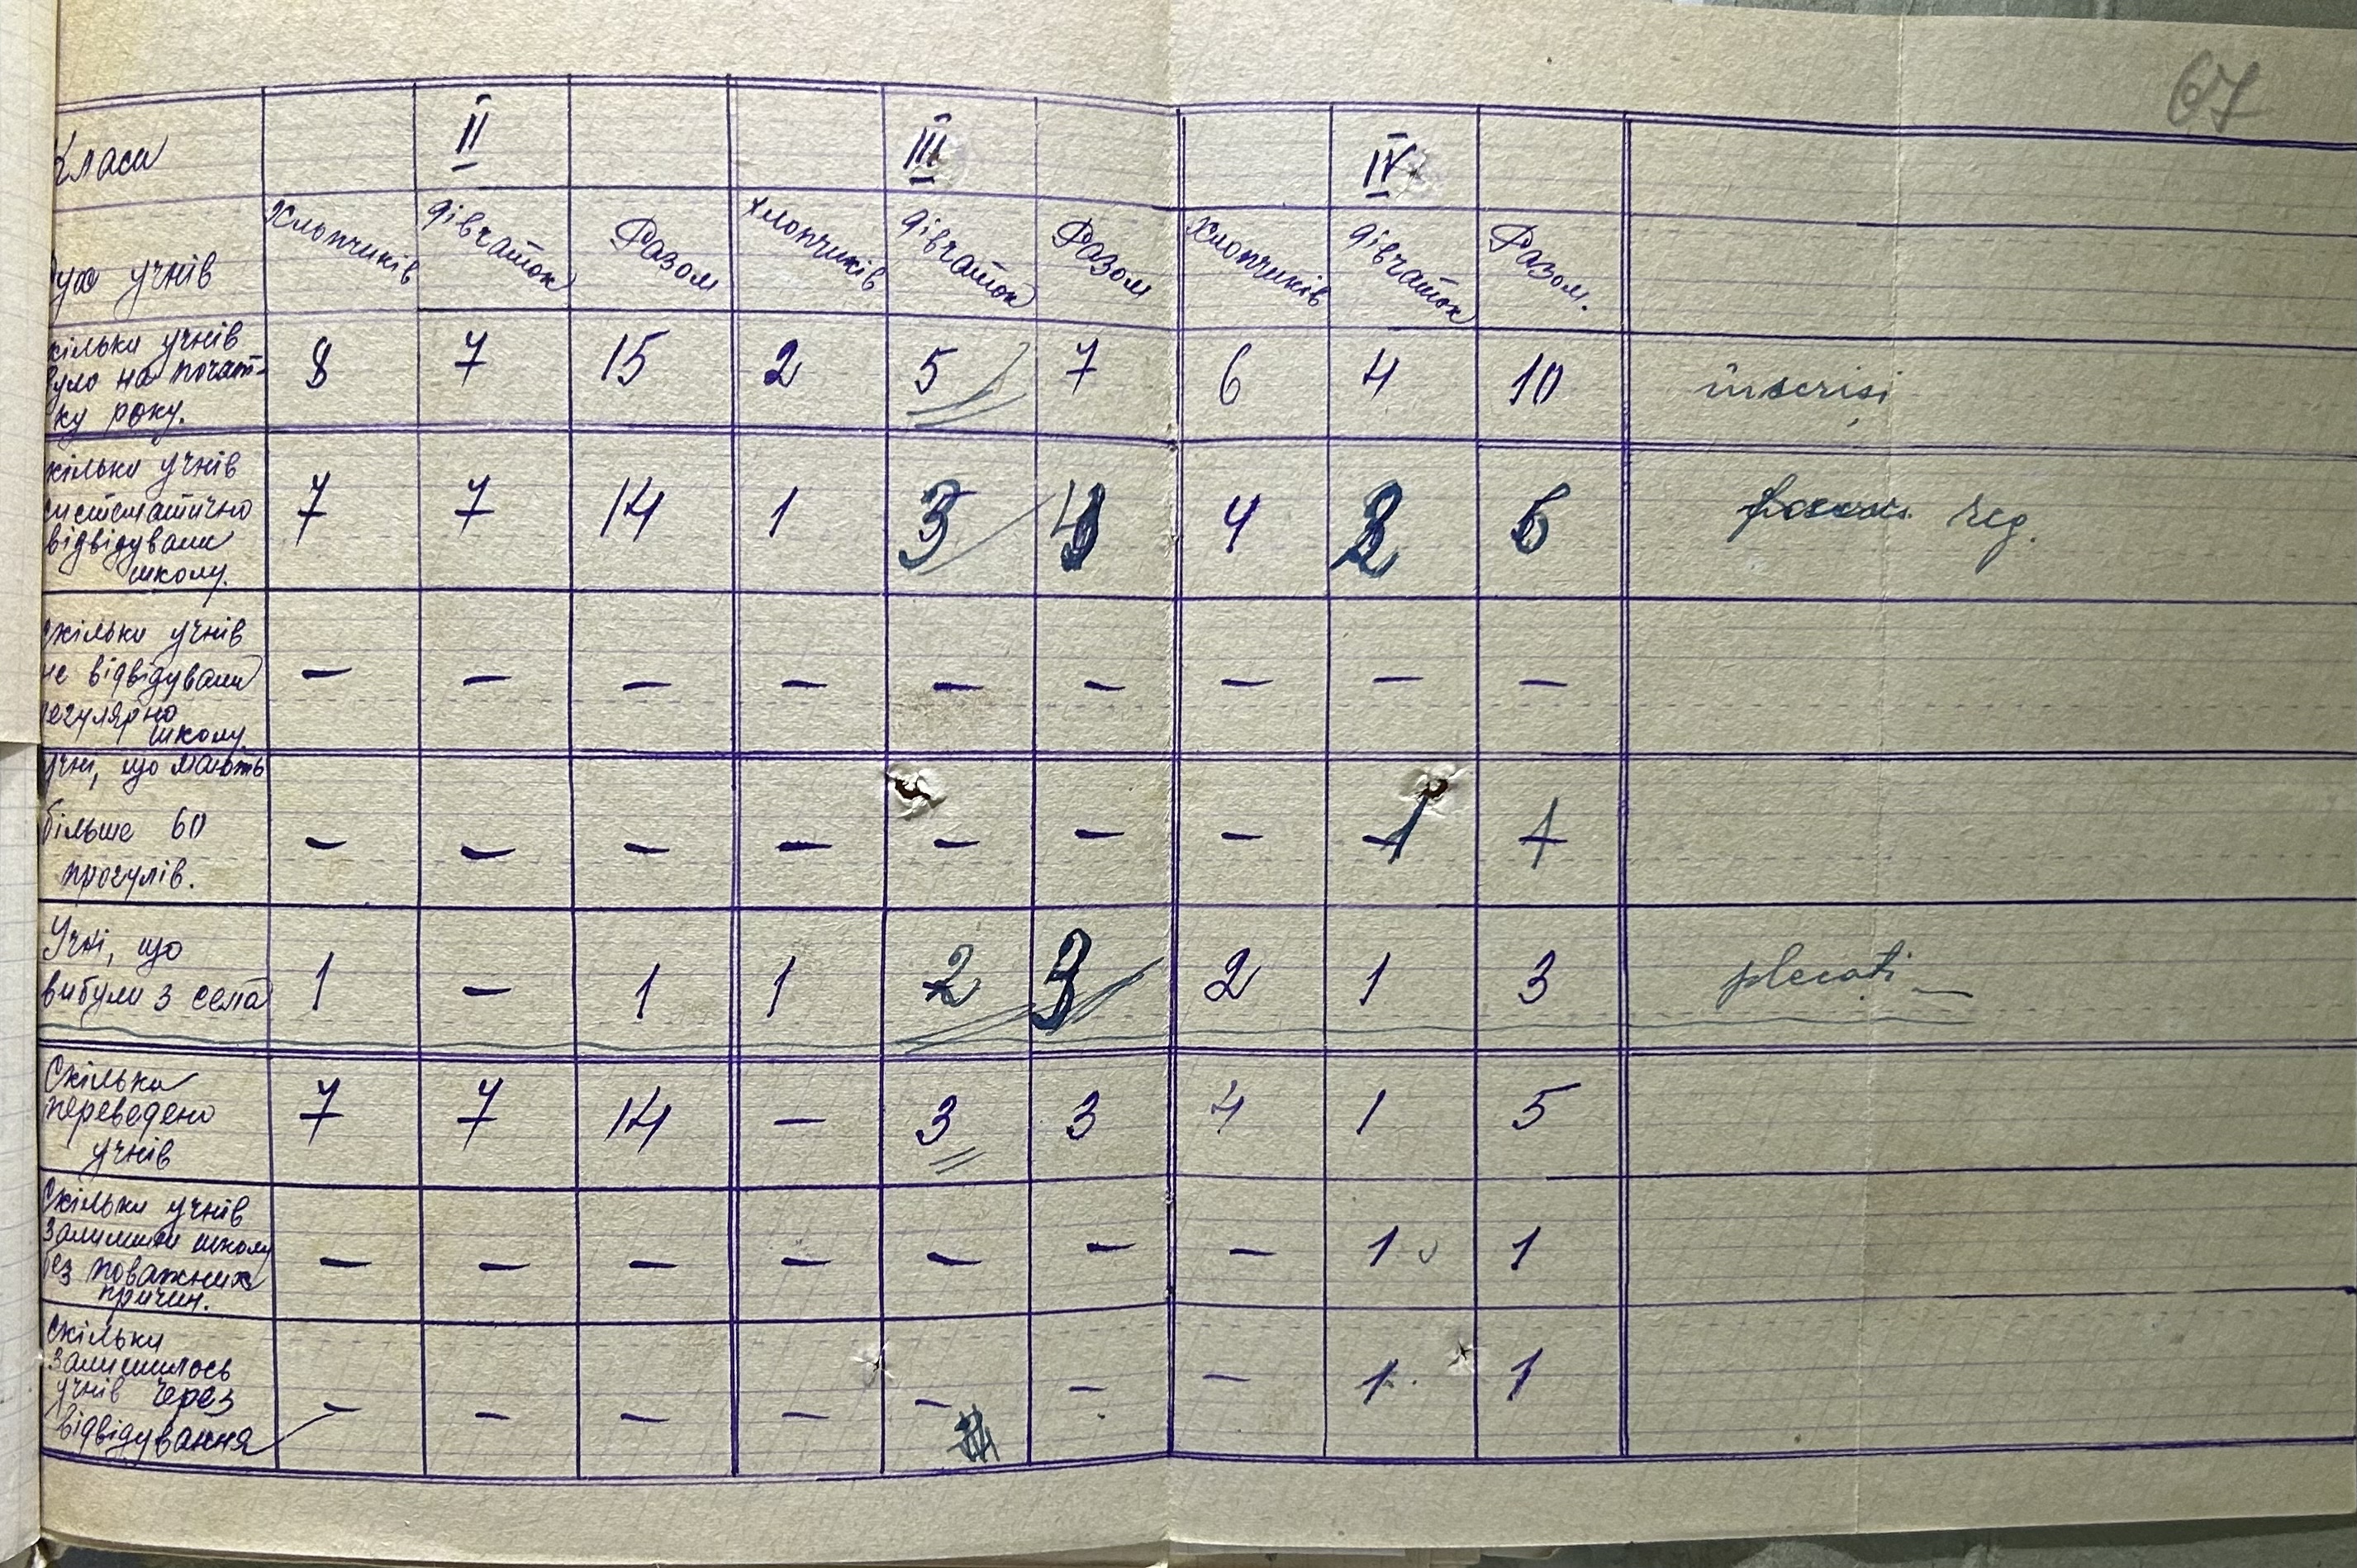 67
Класи II III IV
Рух учнів Хлопчиків Дівчаток Разом Хлопчиків Дівчаток Разом Хлопчиків Дівчаток Разом.
кільки учнів
було на почат- 8 7 15 2 5 7 6 4 10 înscrişi
ку року.
кільки учнів
систематично 7 7 14 1 3 4 3 reg.
відвідували
школу.
скільки учнів
не відвідували – – – – – – – – –
регулярно
школу.
учні, що мають
більше 60 – – – – – – – 1 1
прогулів.
Учні, що
вибули з села 1 – 1 1 2 3 2 1 3 plecaţi –
Скільки
переведено 7 7 14 – 3 3 4 1 5
учнів
Скільки учнів
залишили школу – – – – – – – 1 1
без поважних
причин.
Скільки
залишилось
учнів через – – – – – – – 1 1
відвідування